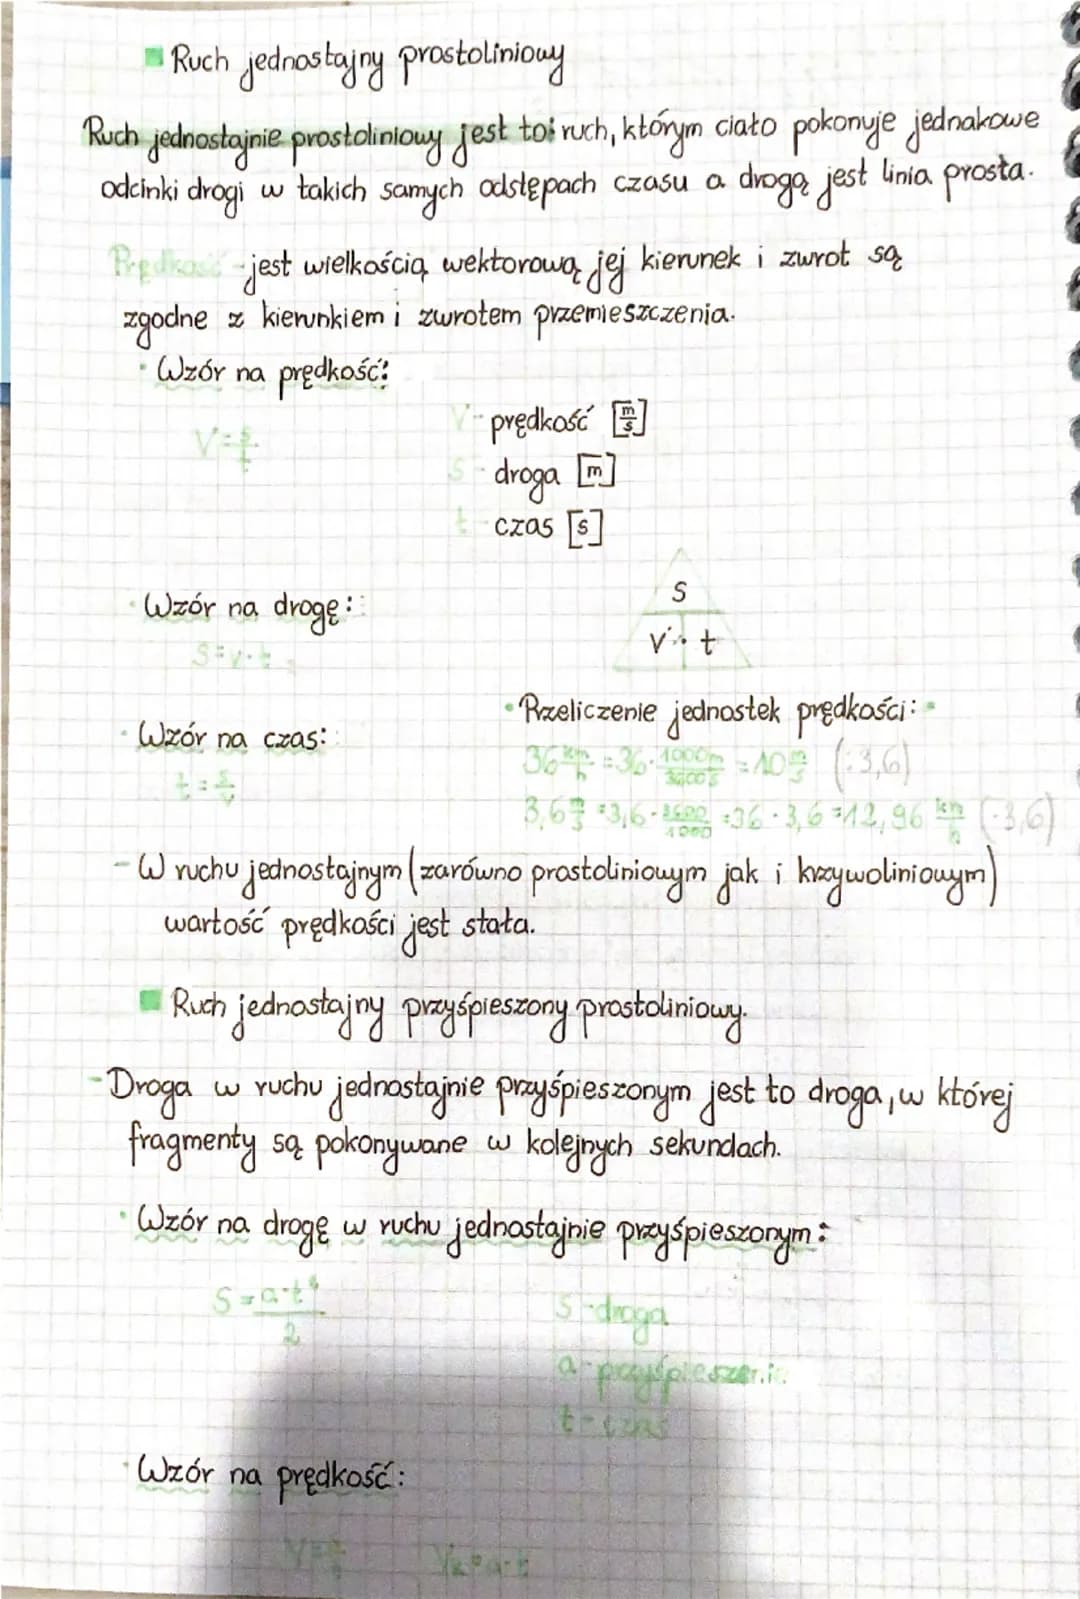 Ruch jednostajny prostoliniowy
Ruch jednostajnie prostoliniowy jest to: ruch, którym ciało pokonuje jednakowe
odcinki drogi w takich samych odstępach czasu a drogą jest linia prosta.
Prędkość - jest wielkością wektorową, jej kierunek i zwrot są
zgodne z kierunkiem i zwrotem przemieszczenia.
Wzór na prędkość:
V = s/t
V - prędkość [m/s]
S - droga [m]
t - czas [s]
Wzór na drogę:
S = v · t
S
V · t
Wzór na czas:
t = s/v
Przeliczenie jednostek prędkości:
36 km/h = 36 · 1000m/3600s = 10 m/s (:3,6)
3,6 m/s = 3,6 · 3600/1000 = 36 · 3,6 = 12,96 km/h (·3,6)
- W ruchu jednostajnym (zarówno prostoliniowym jak i krzywoliniowym)
wartość prędkości jest stała.
Ruch jednostajny przyśpieszony prostoliniowy.
- Droga w ruchu jednostajnie przyśpieszonym jest to droga, w której
fragmenty są pokonywane w kolejnych sekundach.
Wzór na drogę w ruchu jednostajnie przyśpieszonym:
S = a·t²/2
S - droga
a - przyśpieszenie
t - czas
Wzór na prędkość:
Vk = a·t